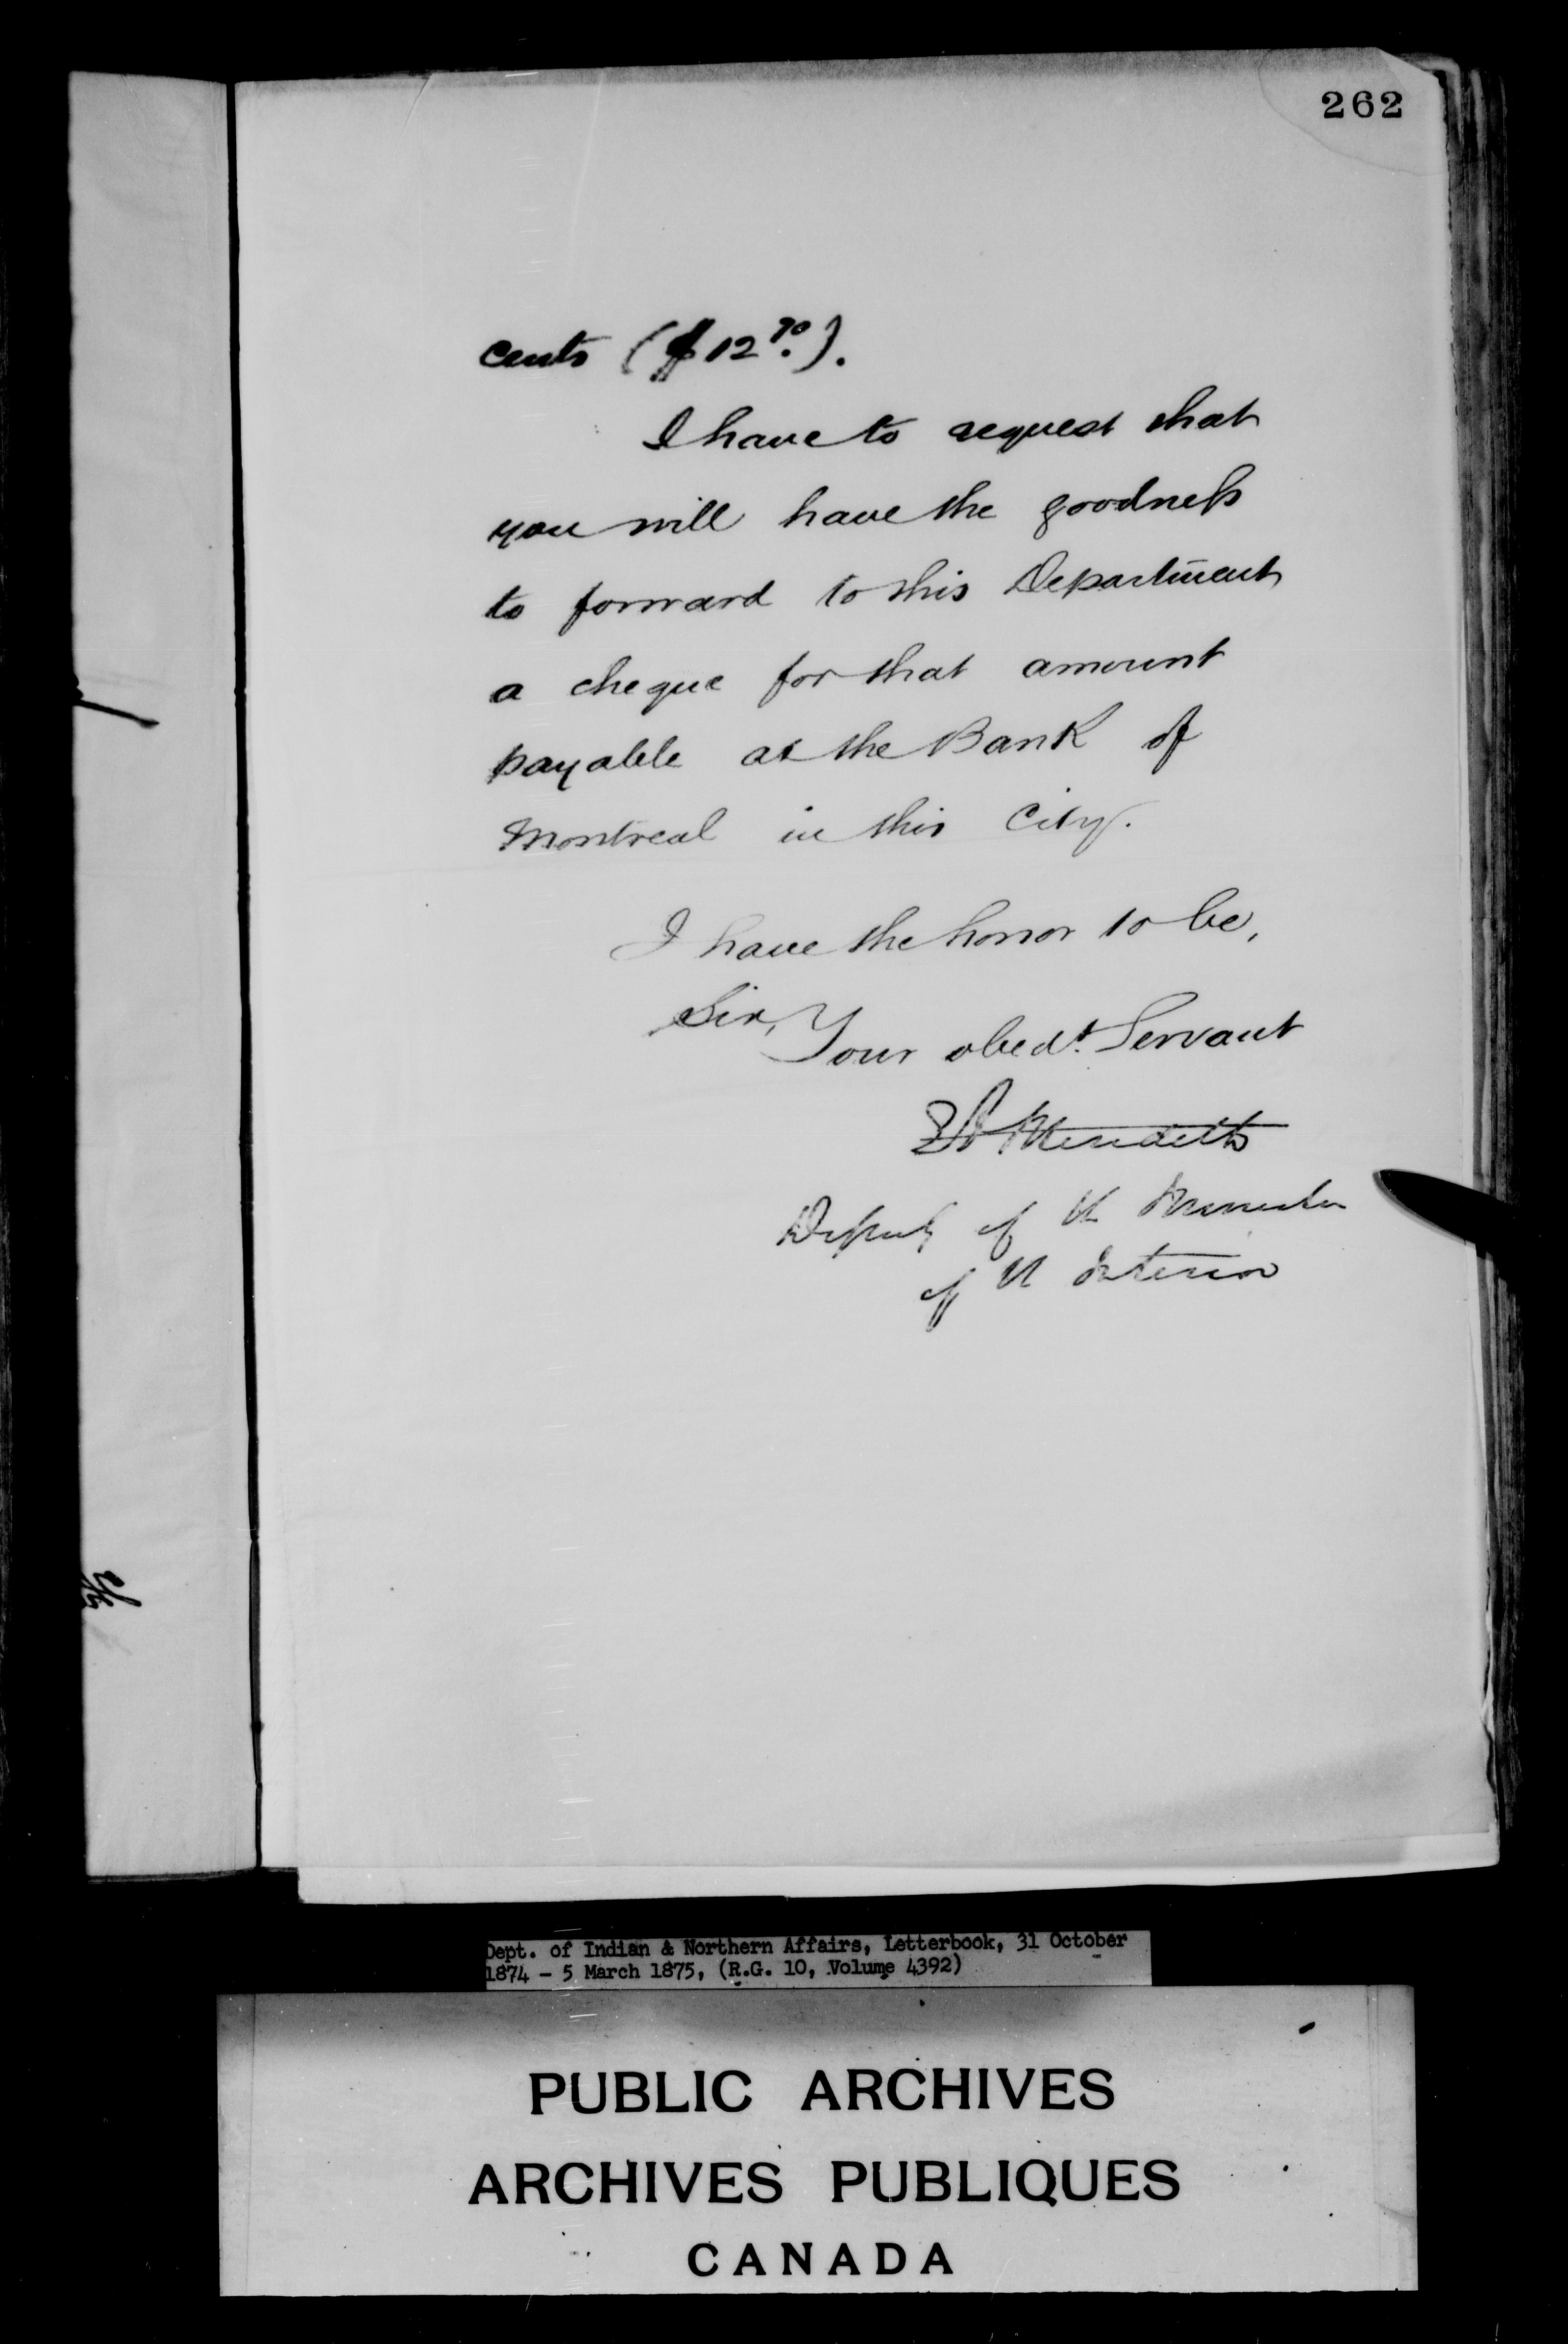 262
cents ($12.70).
I have to request that
you will have the goodness
to forward to this Department
a cheque for that amount
payable at the Bank of
Montreal in this City.
I have the honor to be,
Sir,
Your obedt. Servant
E A Meredith
Deputy of the Minister
of the Interior
Dept. of Indian & Northern Affairs, Letterbook, 31 October
1874 - 5 March 1875, (R.G. 10, Volume 4392)
PUBLIC ARCHIVES
ARCHIVES PUBLIQUES
CANADA